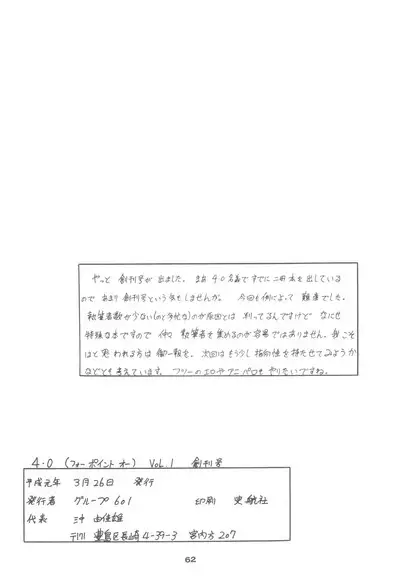 やっと 創刊号が出ました。まあ 4・0名義ですでに二冊本を出している
ので あまり創刊号という気もしませんが。今回も例によって 難産でした。
執筆者数が少ない(のと多忙な)のが原因とは 判ってるんですけど なにせ
特殊な本ですので 仲々 執筆者を集めるのが容易ではありません。我こそ
はと 思われる方は御一報を。次回はもう少し指向性を持たせてみようか
などとも考えています。フリーのエロやアニパロもやりたいですね。
4・0 (フォーポイントオー) VOL.1 創刊号
平成元年 3月26日 発行
発行者 グループ601 印刷
代表 由佳雄
豊島区長崎4-39-3 宮内方207
62